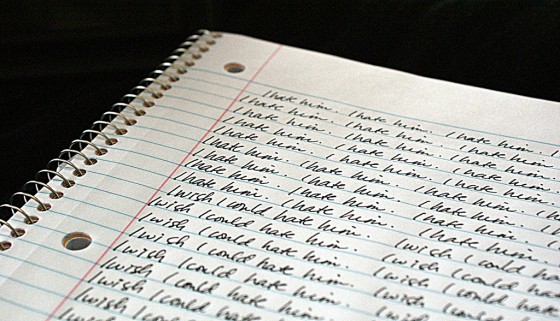 I hate him. I hate him. I hate him.
I hate him. I hate him. I hate him.
I hate him. I hate him. I hate him.
I hate him. I hate him. I hate him.
I hate him. I hate him. I hate him.
I hate him. I hate him. I hate him.
I hate him. I hate him. I hate him.
I hate him. I hate him. I hate him.
I wish I could hate him. I wish I could
I wish I could hate him. I wish I could
I wish I could hate him. I wish I could
I wish I could hate him. I wish I could
I wish I could hate him. I wish
I wish I could hate him. I wish
I wish I could hate him.
I wish I could hate